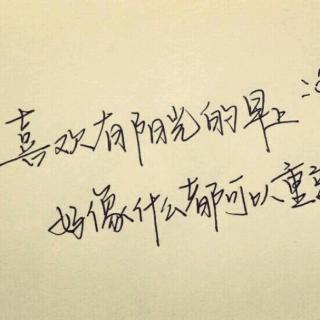 喜欢有阳光的早上
好像什么都可以重